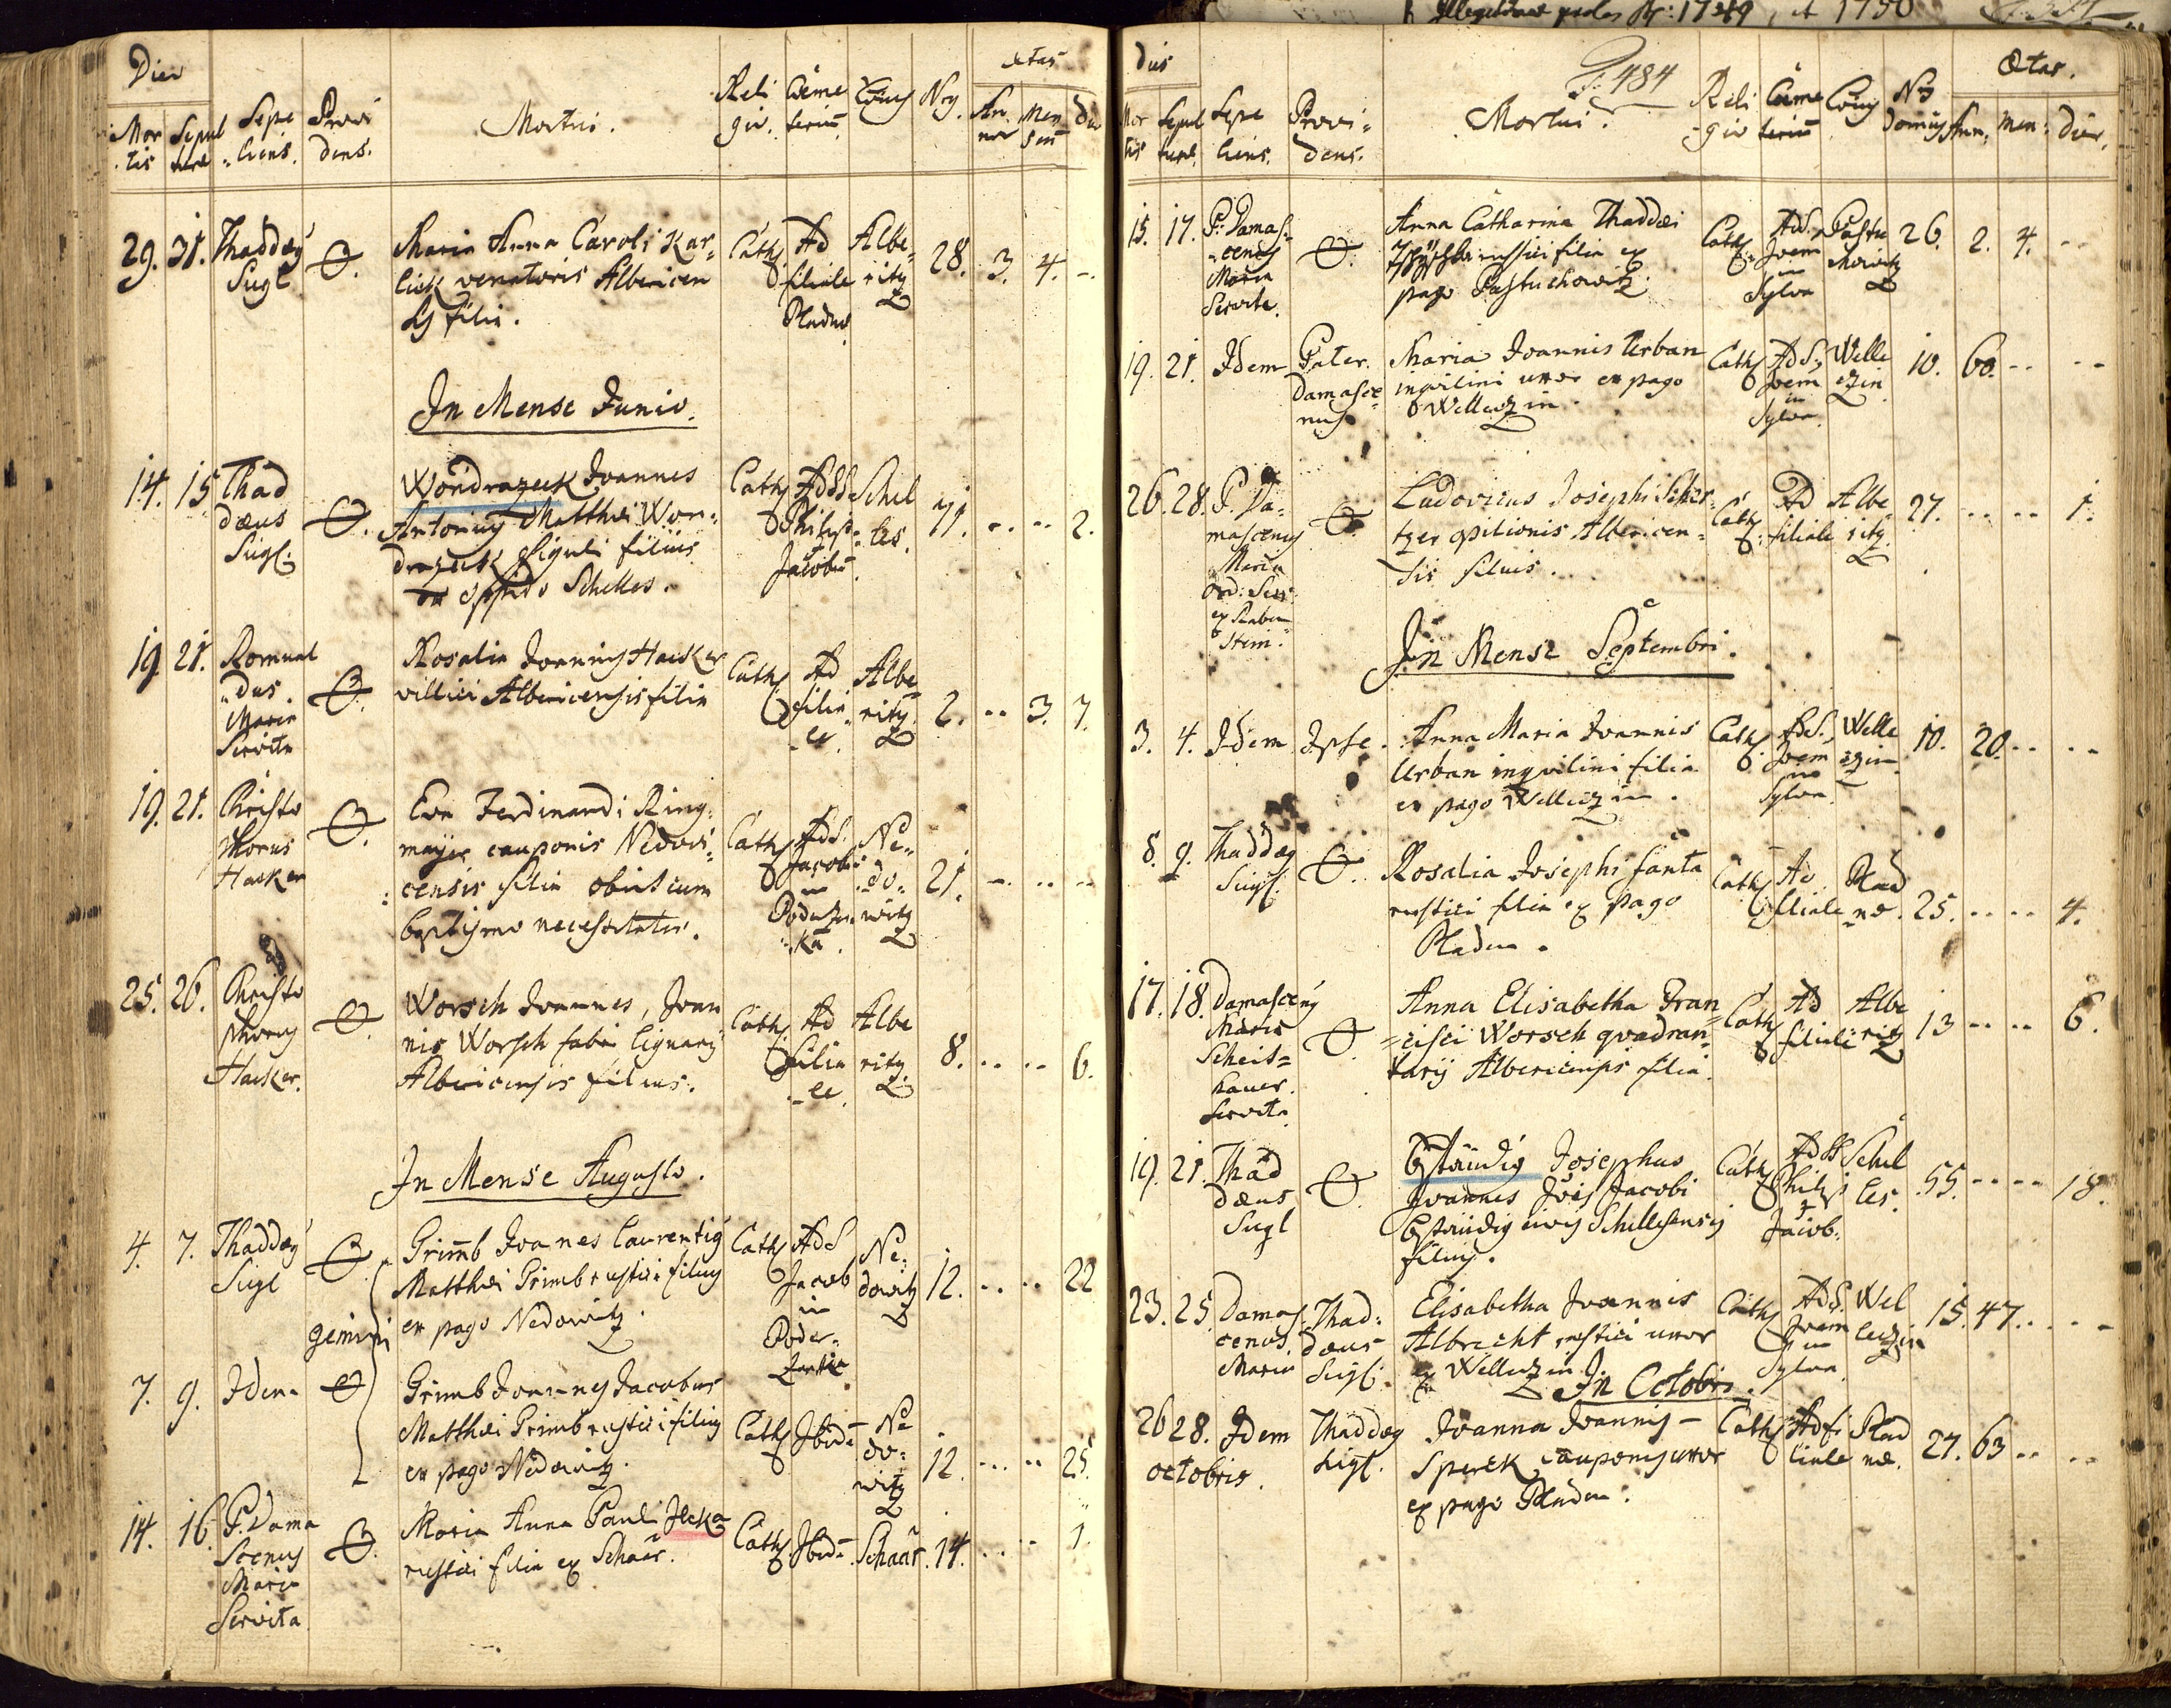 Dies
Mor
tis
Sepul
turæ
Sepe
liens.
Provi
dens.
Mortui.
Reli
gio.
Cœme
terium
Nrꝯ.
ætas
An
nor
Men
sium
29. 31. Thaddæꝯ
Sigl
Maria Anna Caroli Kar-
lick venatoris Albericen
sis filia.
Cath.
Ad
filiale
Pladnæ
Albe-
ritz
28. 3. 4. --
In Mense Junio.
14. 15. Thad
dæus
Sigl.
Wondrazeck Joannes
Antonius Matthæi Won-
drazeck figuli filius
ex oppido Schelles.
Cath.
Ad SS
Philip:
Jacobum.
Schel
les.
71. -- -- 2.
19. 21. Romual
dus.
Maria
Servita
Rosalia Joannis Hacker
villici Albericensis filia
Cath.
Ad
filia
le.
Albe
ritz.
2. -- 3. 7.
19. 21. Christo
phorus
Hacker
Eva Ferdinandi Ring-
mayer cauponis Nedovi-
censis filia obiit cum
baptismo necessitatis.
Cath.
Ad S.
Jacobum
in
Ne-
do-
witz
21. -- -- --
25. 26. Christo
phorꝯ
Hacker.
Worsch Joannes, Joan
nis Worsch fabri lignarij
Albericensis filius.
Cath.
Ad
filia
le.
Albe
ritz.
8. -- -- 6.
In Mense Augusto.
4. 7. Thaddæꝯ
Sigl
Grimb Joanes Laurentiꝯ
Matthæi Grimb rustici filius
ex pago Nedowitz.
Cath.
Ad S
Jacob
in
Ne
dowitz
12. -- -- 22
gemini
7. 9. Idem
Grimb Joannes Jacobus
Matthæi Grimb rustici filius
ex pago Nedowitz.
Cath.
Ibid:
Ne
do-
witz
12. -- -- 25.
14. 16. P. Dama
scenus
Maria
Servita
Maria Anna Pauli Jlcka
rustici filia ex Schaar.
Cath.
Ibid:
Schaar.
14. -- -- 1.
1749, et 1750
P: 484
dies
Mor
tis
Sepul
turæ
Sepe
liens.
Provi-
dens.
Mortui.
Reli
gio
Cœme
terium
Nrꝯ
Domus
Ætas.
Ann.
Men:
Dies.
15. 17. P. Damas-
cenus
Maria
Servita.
Anna Catharina Thaddæi
rustici filia ex
pago Pastuchowitz.
Cath.
Ad S.
Joem
in
Sylva
Pastu
chowitz
26. 2. 4. --
19. 21. Idem
Pater.
Damasce
nus
Maria Joannis Urban
inquilini uxor ex pago
Wellezin.
Cath.
Ad S.
Joem
in
Sylva.
Welle
zin
10. 60. -- --
26. 28. P. Da-
mascenus
Maria
Ord: Serv:
ex Raben
stein.
Ludovicus Josephi
opilionis Albericen-
sis filius.
Cath.
Ad
filiale
Albe
ritz.
27. -- -- 1.
In Mense Septembri.
3. 4. Idem Ipse.
Anna Maria Joannis
Urban inquilini filia
ex pago Wellezin.
Cath.
Ad S.
Joem
in
Sylva.
Welle
zin
10. 20. -- --
8. 9. Thaddæꝯ
Sigl.
Rosalia Josephi Fanta
rustici filia ex pago
Pladen.
Cath.
Ad
filiale
Plad
næ.
25. -- -- 4.
17. 18. Damascenꝯ
Maria
Scheit-
hauer.
Servita
Anna Elisabetha Fran-
cisci Worsch quadran-
tarij Albericensis filia.
Cath.
Ad
filiale
Albe
ritz
13 -- -- 6.
19. 21. Thad
dæus
Sigl
Gständig Josephus
Joannes Jois Jacobi
Gständig civis Schellesensis
filius.
Cath.
Ad SS
Philip
Jacob.
Schel
les.
55. -- -- 18.
23. 25. Damas
cenus
Maria
Thad-
dæus
Sigl.
Elisabetha Joannis
Albrecht rustici uxor
ex Wellezin.
Cath.
Ad S.
Joem
in
Sylva.
Wel
lezin
15. 47. -- --
In Octobri.
26 28. Idem
octobris.
Thaddæꝯ
Sigl.
Joanna Joannis
Sperck cauponis uxor
ex pago Pladen.
Cath.
Ad fi
liale
Plad
næ.
27. 63 -- --